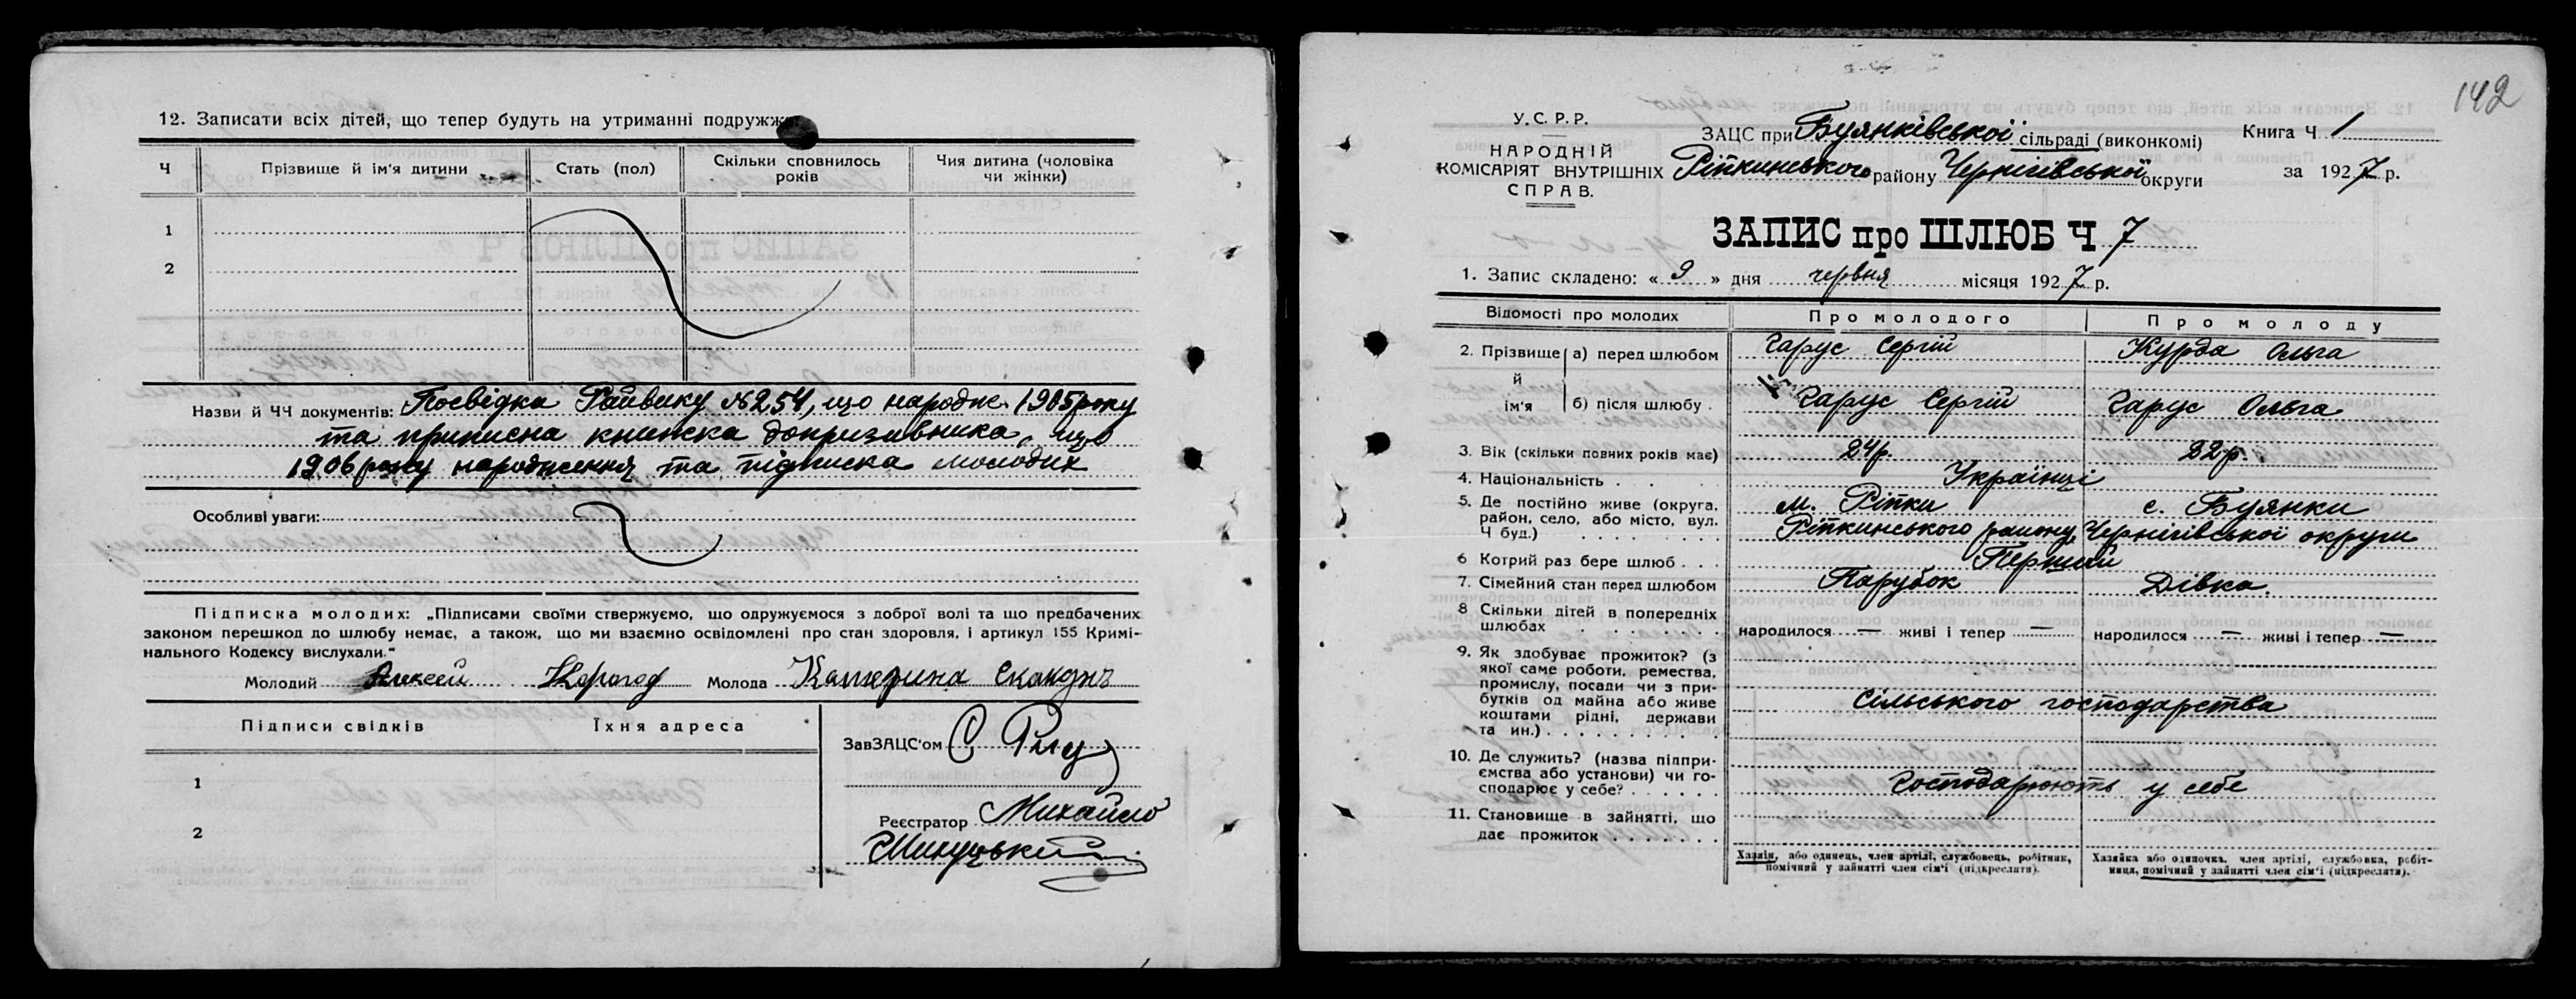 12. Записати всіх дітей, що тепер будуть на утриманні подружж
Ч | Прізвище й ім'я дитини | Стать (пол) | Скільки сповнилось років | Чия дитина (чоловіка чи жінки)
1
2
Назви й ЧЧ документів: Посвідка Райвику №254, що народж. 1905 року
та приписна книжка допризивника, що
1906 року народження та підписка молодих
Особливі уваги:
Підписка молодих: „Підписами своїми ствержуємо, що одружуємося з доброї волі та що предбачених
законом перешкод до шлюбу немає, а також, що ми взаємно освідомлені про стан здоровля, і артикул 155 Кримі-
нального Кодексу вислухали."
Молодий Алексей Корогод Молода Катерина Скакунъ
Підписи свідків | Їхня адреса
ЗавЗАЦС'ом
1
Реєстратор Михайло
2
142
У.С.Р.Р.
НАРОДНІЙ
КОМІСАРІЯТ ВНУТРІШНІХ
СПРАВ.
ЗАЦС при Буянківської сільраді (виконкомі)
Ріпкинського району Чернігівської округи
Книга Ч 1
за 1927 р.
ЗАПИС про ШЛЮБ Ч 7
1. Запис складено: « 9 » дня червня місяця 1927 р.
Відомості про молодих | Про молодого | Про молоду
2. Прізвище й ім'я а) перед шлюбом | Гарус Сергій | Журба Ольга
б) після шлюбу . | Гарус Сергій | Гарус Ольга
3. Вік (скільки повних років має) | 24 р. | 22 р.
4. Національність . . . Українці
5. Де постійно живе (округа, | м. Ріпки | с. Буянки
район, село, або місто, вул. Ріпкинського району, Чернігівської округи
Ч буд.) . . . . . . . .
6 Котрий раз бере шлюб . . . Перший
7. Сімейний стан перед шлюбом | Парубок | Дівка.
8 Скільки дітей в попередніх
шлюбах . . . . . . . . | народилося — живі і тепер — | народилося — живі і тепер —
9. Як здобуває прожиток? (з
якої саме роботи, ремества,
промислу, посади чи з при-
бутків од майна або живе Сільського господарства
коштами рідні, держави
та ин.) . . . . . . . .
10. Де служить? (назва підпри-
ємства або установи) чи го- Господарюють у себе
сподарює у себе? . . . . . .
11. Становище в зайнятті, що
дає прожиток . . . . . . .
Хазяїн, або одинець, член артілі, службовець, робітник,
помічний у зайнятті член сім'ї (підкреслити).
Хазяйка або одиночка, член артілі, службовка, робіт-
ниця, помічний у зайнятті член сім'ї (підкреслити).